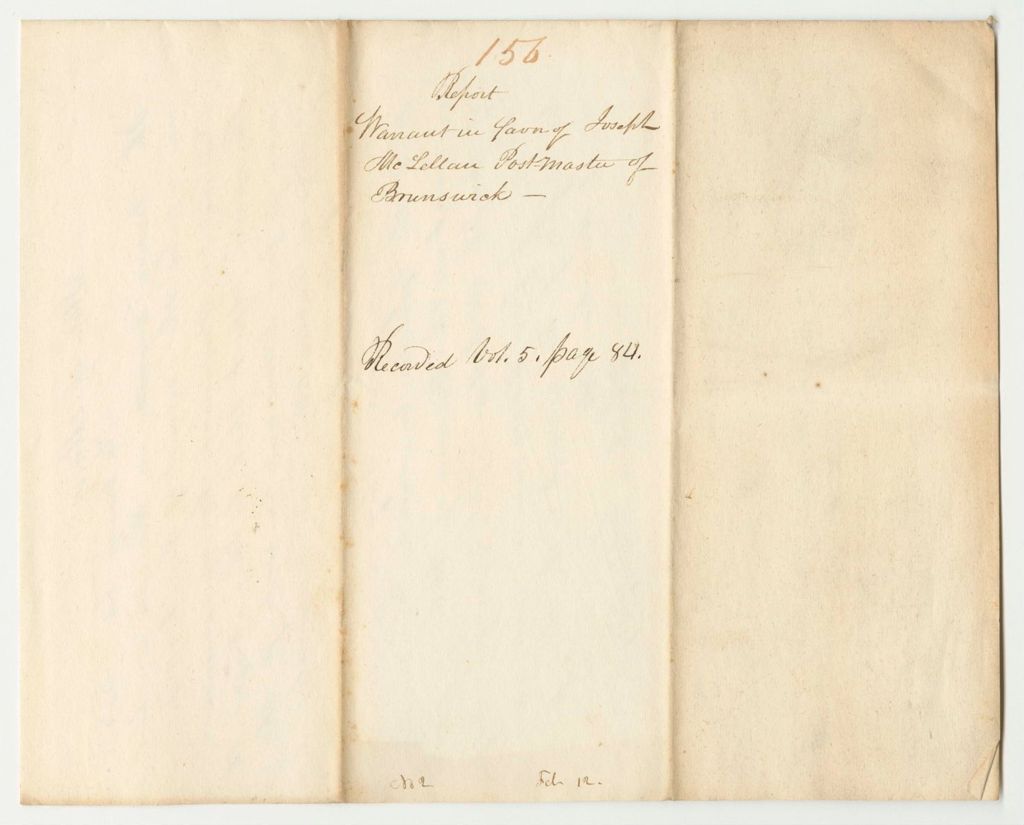 156
Report
Warrant in favor of Joseph
McLellan Post-master of
Brunswick —
Recorded Vol. 5. page 84.
No 2 Feb 12.